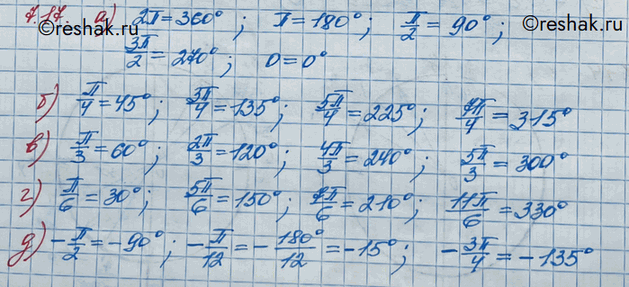 7.17 а) 2π = 360°; π = 180°; π/2 = 90°;
3π/2 = 270°; 0 = 0°
б) π/4 = 45°; 3π/4 = 135°; 5π/4 = 225°; 7π/4 = 315°
в) π/3 = 60°; 2π/3 = 120°; 4π/3 = 240°; 5π/3 = 300°
г) π/6 = 30°; 5π/6 = 150°; 7π/6 = 210°; 11π/6 = 330°
д) -π/2 = -90°; -π/12 = -180°/12 = -15°; -3π/4 = -135°